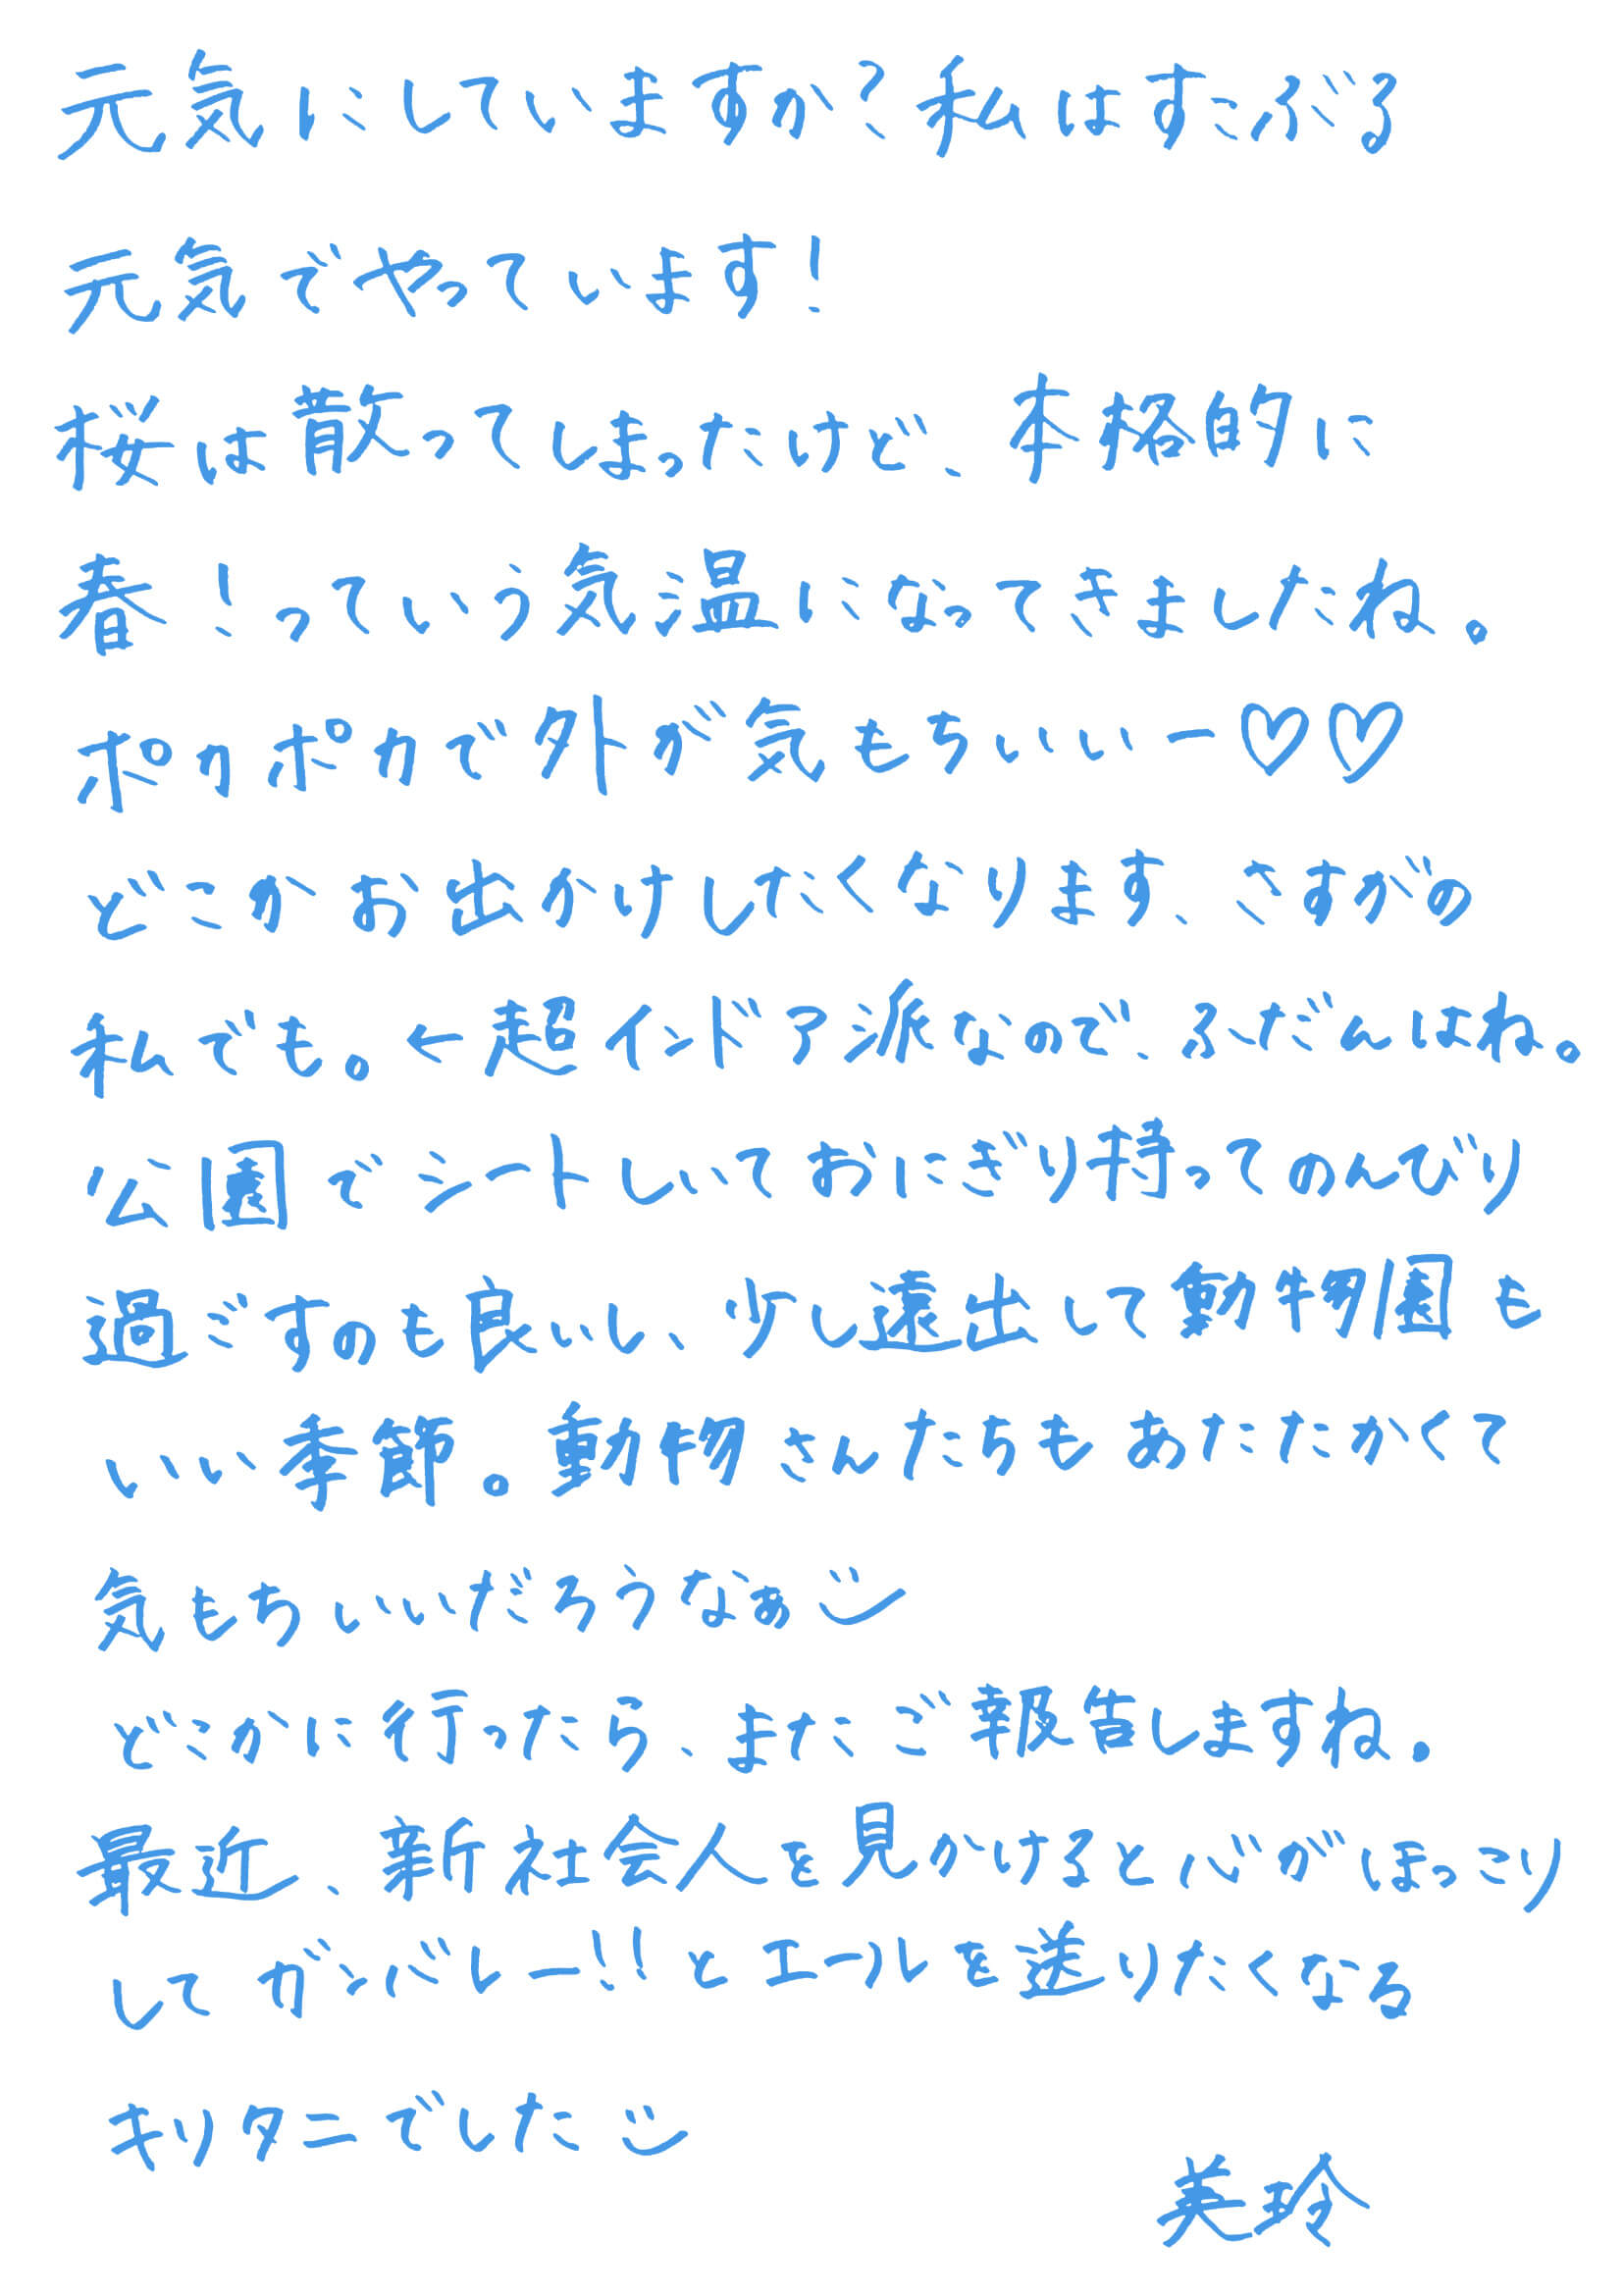 元気にしていますか？私はすこぶる
元気でやっています！
桜は散ってしまったけど、本格的に
春！っていう気温になってきましたね。
ポカポカで外が気もちいいー♡♡
どこかお出かけしたくなります、さすがの
私でも。←超インドア派なので、ふだんはね。
公園でシートしいておにぎり持ってのんびり
過ごすのも良いし、少し遠出して動物園も
いい季節。動物さんたちもあたたかくて
気もちいいだろうなぁ
どこかに行ったら、またご報告しますね.
最近、新社会人を見かけると心がほっこり
してガンバレー!!とエールを送りたくなる
キリタニでした
美玲